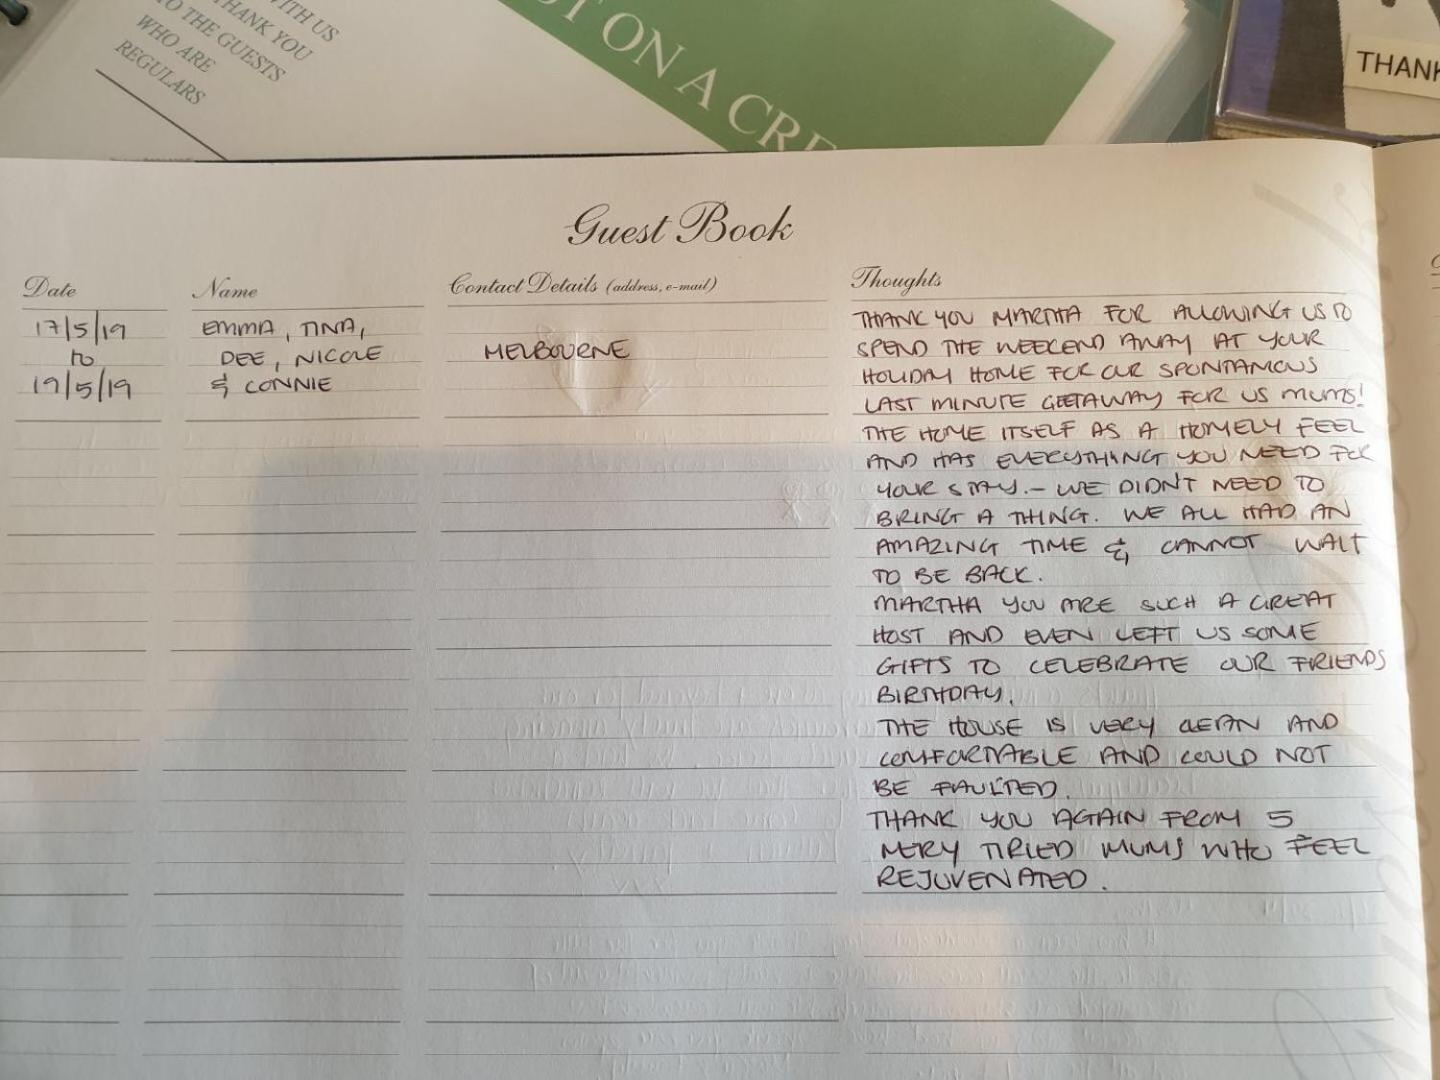 WITH US
THANK YOU
TO THE GUESTS
WHO ARE
REGULARS
OT ON A CRE
THANK
Guest Book
Date
Name
Contact Details (address, e-mail)
Thoughts
17/5/19
to
19/5/19
EMMA, TINA,
DEE, NICOLE
& CONNIE
MELBOURNE
THANK YOU MARTHA FOR ALLOWING US TO
SPEND THE WEEKEND AWAY AT YOUR
HOLIDAY HOME FOR OUR SPONTANIOUS
LAST MINUTE GETAWAY FOR US MUMS!
THE HOME ITSELF AS A HOMELY FEEL
AND HAS EVERYTHING YOU NEED FOR
YOUR STAY. - WE DIDN'T NEED TO
BRING A THING. WE ALL HAD AN
AMAZING TIME & CANNOT WAIT
TO BE BACK.
MARTHA YOU ARE SUCH A GREAT
HOST AND EVEN LEFT US SOME
GIFTS TO CELEBRATE OUR FRIENDS
BIRTHDAY.
THE HOUSE IS VERY CLEAN AND
COMFORTABLE AND COULD NOT
BE FAULTED.
THANK YOU AGAIN FROM 5
VERY TIRED MUMS WHO FEEL
REJUVENATED.